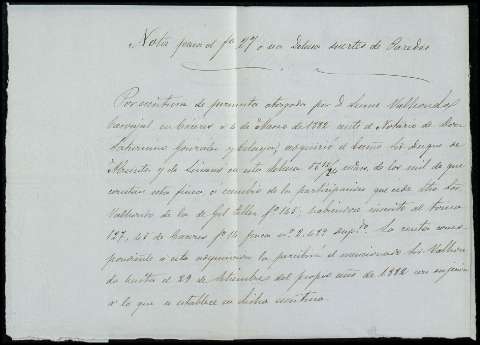 Nota para el fº 27 o sea Dehesa suertes de Paredes
Por escritura de permuta otorgada por D. Valhondo
Carvajal en Cáceres a 6 de Marzo de 1882 ante el Notario de Don
González y adquirió el Exmo Sr. Duque de
Abrantes y de Linares en esta dehesa de los mil de que
consta esta finca, a cambio de la participación que cede dho Sor
Valhondo de la de Gil Tellez fº 145; habiendose inscrito al tomo
127, 45 de Cáceres fº 14 finca nº 2.629 dupdo. La renta corres
pondiente a esta adquisicion la percibirá el mencionado Sr. Valhon
do hasta el 29 de Setiembre del propio año de 1882 con sujecion
a lo que se establece en dicha escritura.